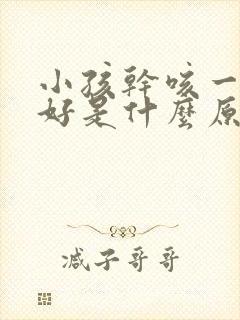 小孩幹咳一
好是什麼原
减子哥哥